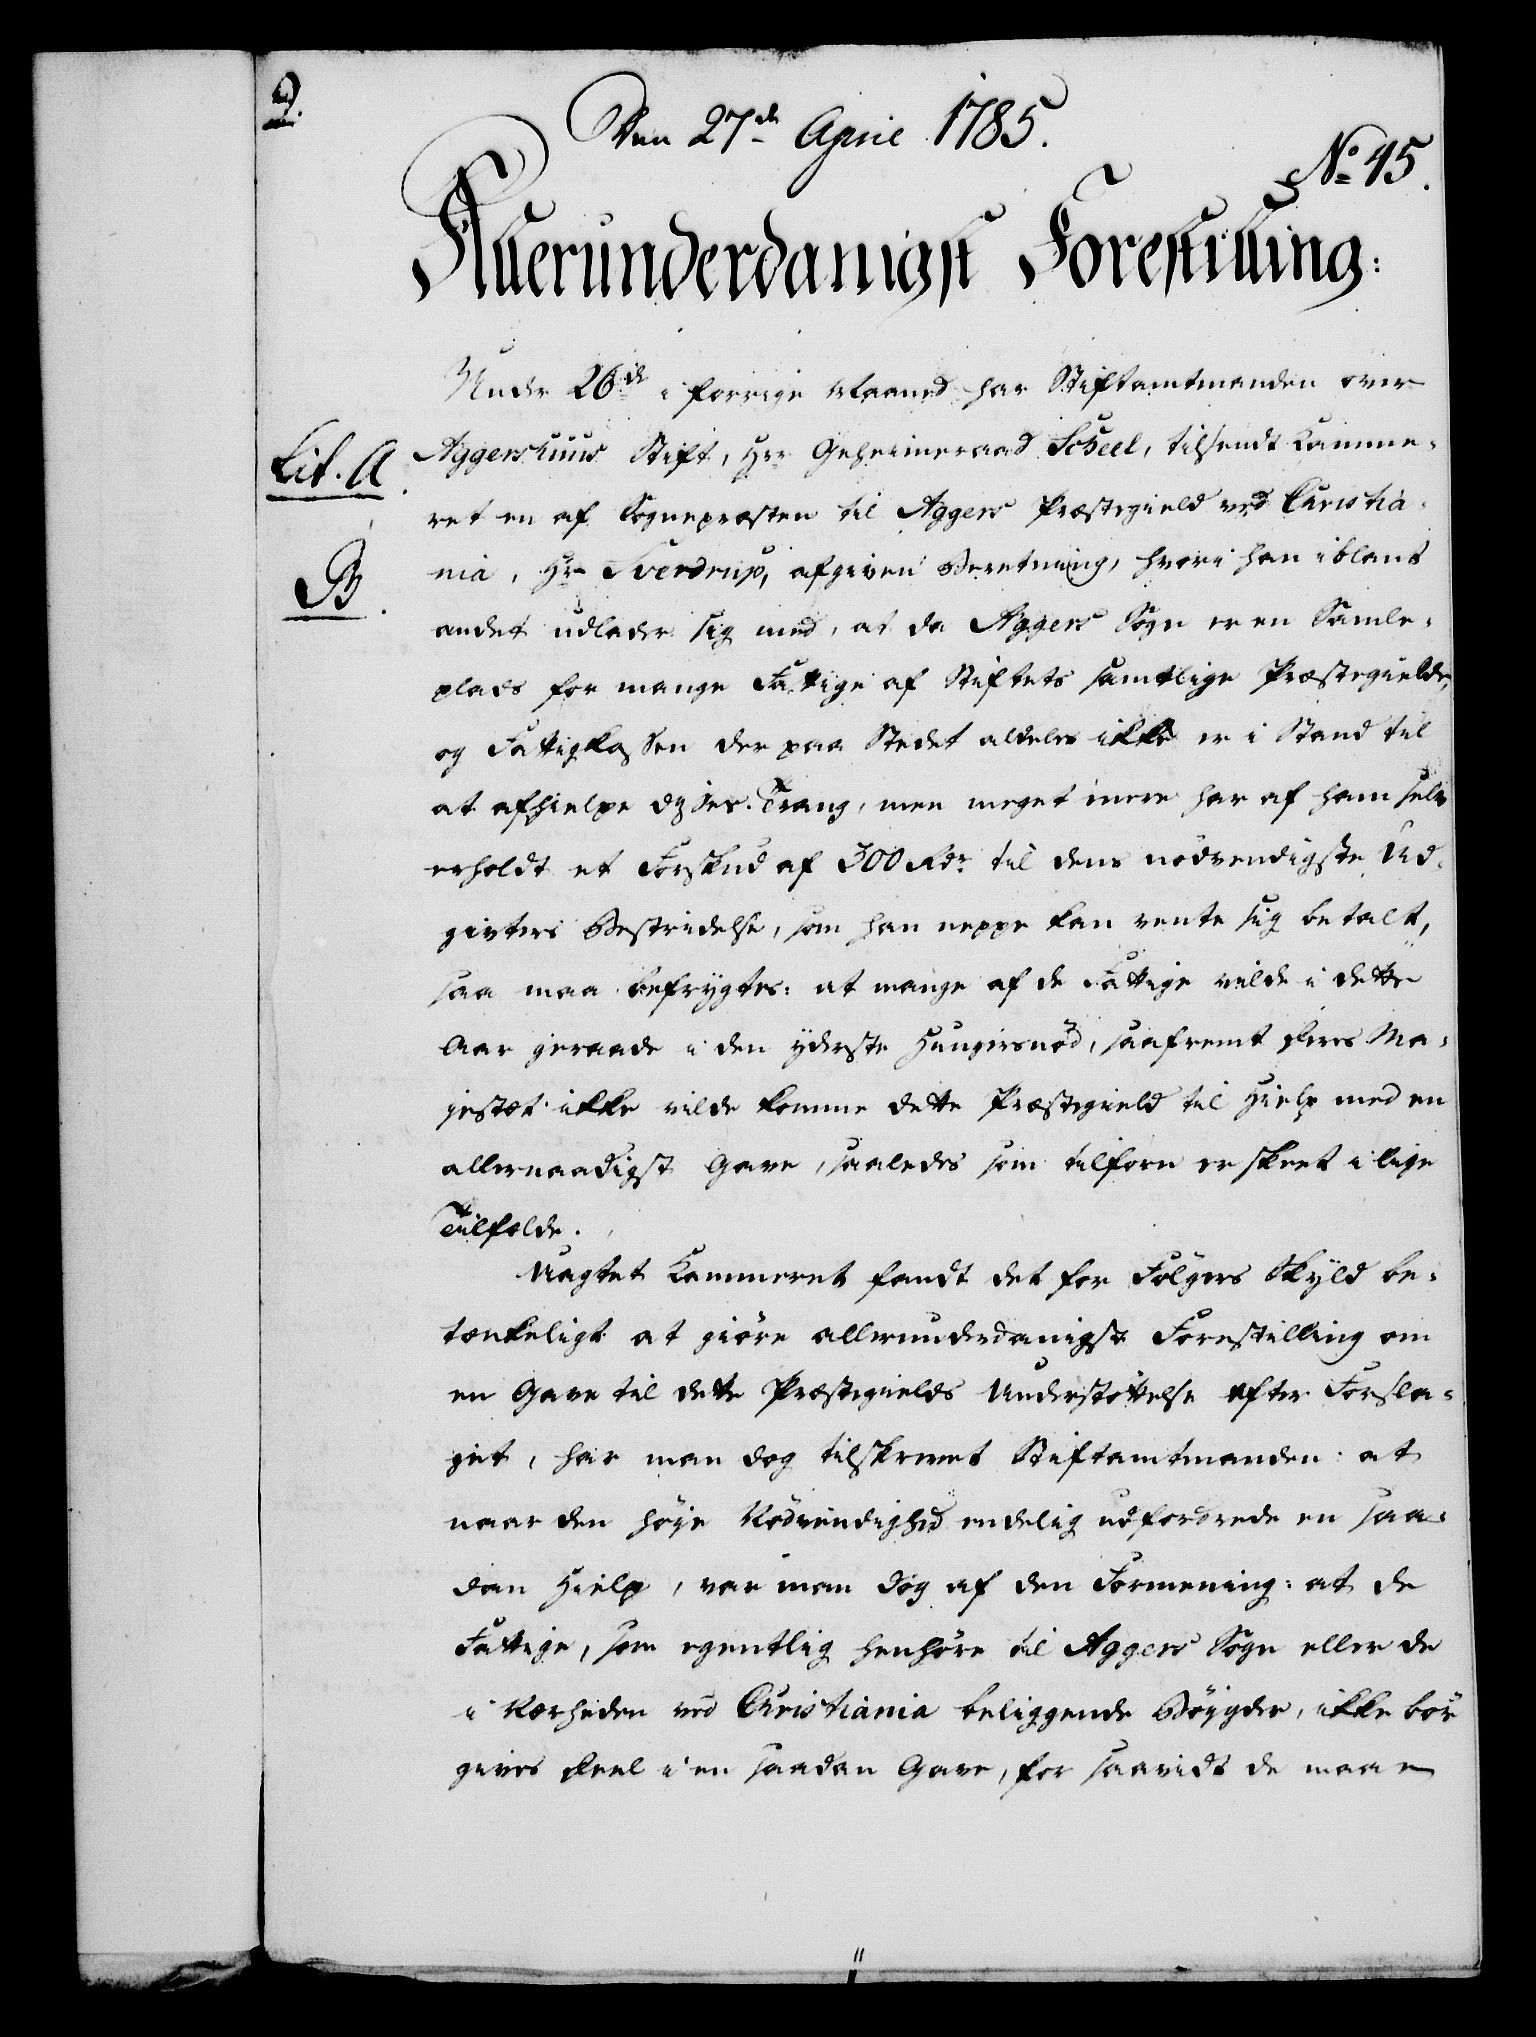 2.
Den 27de April 1785.
No 45.
Allerunderdanigst Forestilling:
Under 26de i forrige Maaned har Stiftamtmanden over
Lit. A.
Aggershuus Stift, Hr Geheimeraad Scheel, tilsendt Kamme-
ret en af Sognepræsten til Aggers Præstegield ved Christia-
B.
nia, Hr Sverdrup, afgiven Beretning, hvori han iblant
andet udlader sig med, at da Aggers Sogn er en Samle-
plads for mange Fattige af Stiftets samtlige Præstegielde,
og Fattigkassen der paa Stedet aldeles ikke er i Stand til
at afhielpe disses Trang, men meget mere har af ham selv
erholdt et Forskud af 300 Rdr til dens nödvendigste Ud-
givters Bestridelse, som han neppe kan vente sig betalt,
saa maa befrygtes: at mange af de Fattige vilde i dette
Aar geraade i den yderste Hungersnöd, saafremt Deres Ma-
jestæt ikke vilde komme dette Præstegield til Hielp med en
allernaadigst Gave, saaledes som tilforn er skeet i lige
Tilfælde.
Uagtet Kammeret fandt det for Fölgers Skyld be-
tænkeligt at giöre allerunderdanigst Forestilling om
en Gave til dette Præstegields Understöttelse efter Forsla-
get, har man dog tilskrevet Stiftamtmanden: at
naar den höye Nödvendighed endelig udfordrede en saa-
dan Hielp, var man dog af den Formening: at de
Fattige, som egentlig henhöre til Aggers Sogn eller de
i Nærheden ved Christiania beliggende Böygder, ikke bör
gives Deel i en saadan Gave, for saavidt de maae